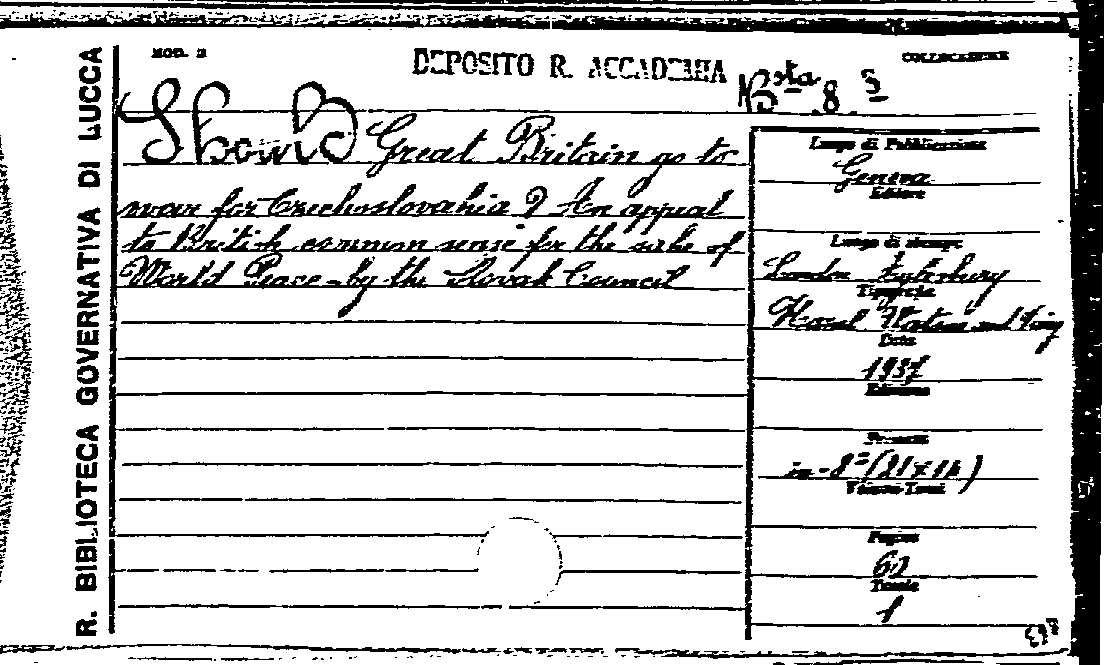 R. BIBLIOTECA GOVERNATIVA DI LUCCA
MOD. 2
DEPOSITO R. ACCADEMIA
COLLOCAZIONE
Bsta 8 5
Should Great Britain go to
war for Czechoslovakia? An appeal
to British common sense for the sake of
World Peace - by the Slovak Council
Luogo di Pubblicazione
Geneva
Editore
Luogo di stampa
London
Tipografia
Hazel Watson and Viney
Data
1937
Edizione
Formato
in-8° (21x14)
Volume-Tomi
Pagine
Tavole
1